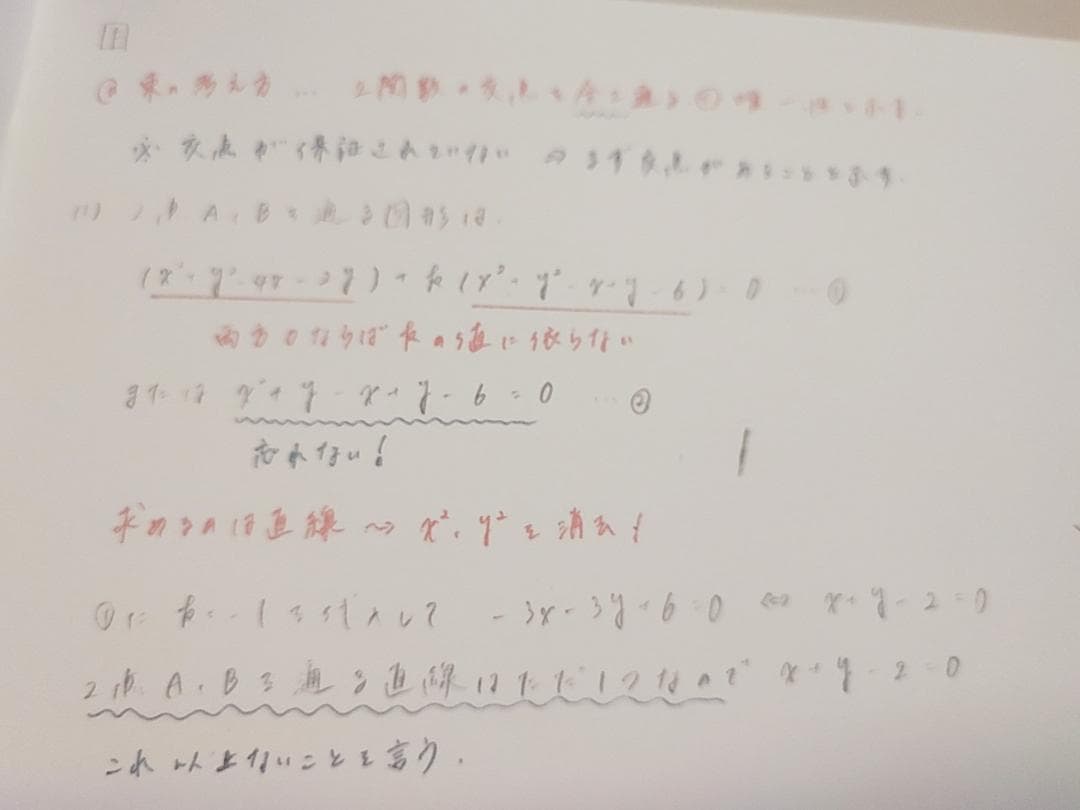 1
束の考え方 … 2関数の交点を全て通る
※ 交点が保証されていない ⇒ まず交点があることを示す.
(1) 2点A、Bを通る図形は.
(x²+y²-4x-2y)+k(x²+y²-x+y-6)=0 … ①
両方0ならばkの値に依らない
または x²+y²-x+y-6=0 … ②
忘れない!
求めるのは直線 〜> x², y²を消去!
①にk=-1を代入して -3x-3y+6=0 ⇔ x+y-2=0
2点A、Bを通る直線はただ1つなので x+y-2=0
これ以上ないことを言う.